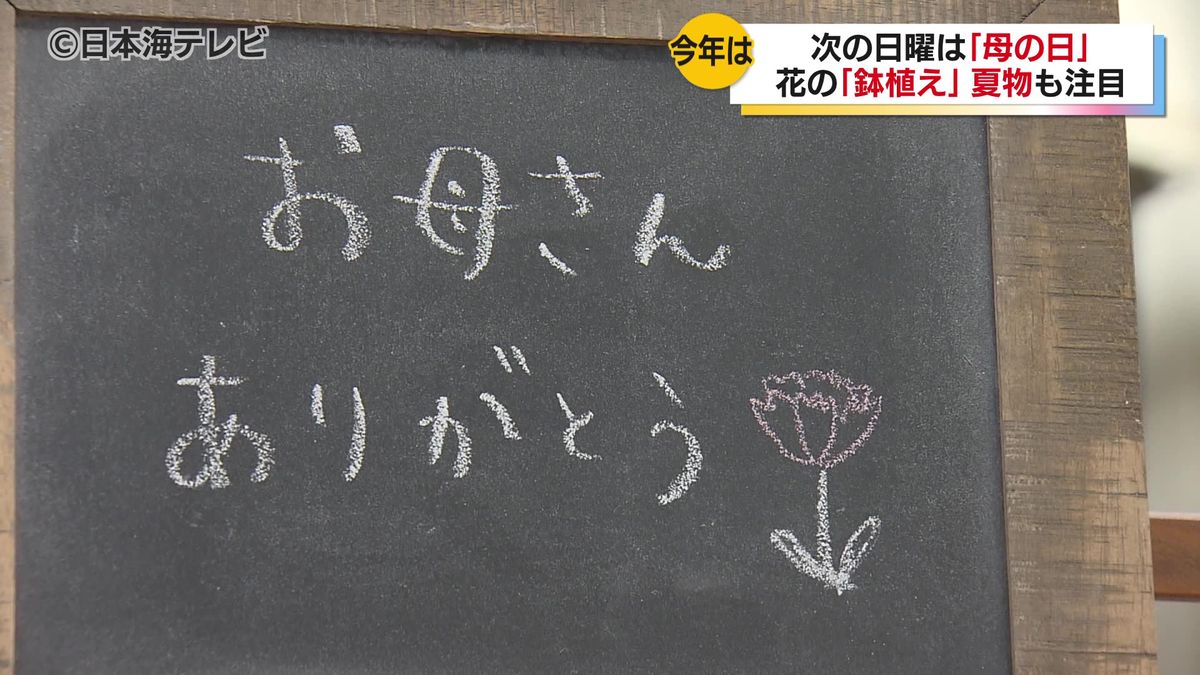 ©日本海テレビ
今年は
次の日曜は「母の日」
花の「鉢植え」夏物も注目
お母さん
ありがとう